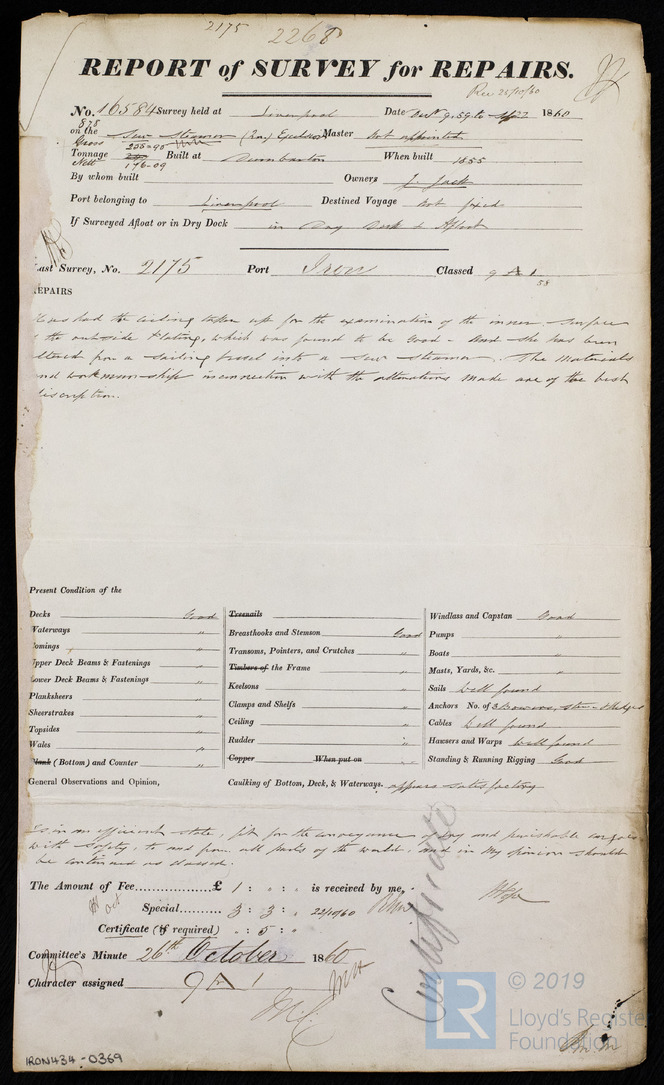 2175 2268
REPORT of SURVEY for REPAIRS.
Rec 23/10/60
No. 16584 Survey held at Liverpool Date Oct 9. 59 to 22 1860
878
on the Screw Steamer Master Not appointed
Gross 255-90
Tonnage Built at Dumbarton When built 1855
Nett 176-09
By whom built Owners J. Jack
Port belonging to Liverpool Destined Voyage Not fixed
If Surveyed Afloat or in Dry Dock in Dry Dock & Afloat
Last Survey, No. 2175 Port Iron Classed 9 A 1
58
REPAIRS
Has had the ceiling taken up for the examination of the inner surface
the outside Plating, which was found to be good - and she has been
altered from a Sailing Vessel into a Screw Steamer. The Materials
and workmanship in connection with the alterations made are of the best
discription.
Present Condition of the
Decks Good
Waterways "
Comings "
Upper Deck Beams & Fastenings "
Lower Deck Beams & Fastenings "
Planksheers "
Sheerstrakes "
Topsides "
Wales "
Plank (Bottom) and Counter "
General Observations and Opinion,
Treenails
Breasthooks and Stemson Good
Transoms, Pointers, and Crutches "
Timbers of the Frame "
Keelsons "
Clamps and Shelfs "
Ceiling "
Rudder "
Copper When put on
Caulking of Bottom, Deck, & Waterways. appears satisfactory
Windlass and Capstan Good
Pumps "
Boats "
Masts, Yards, &c. "
Sails Well found
Anchors No. of 3 Bowers, Stream & Kedges
Cables Well found
Hawsers and Warps Well found
Standing & Running Rigging Good
Is in an efficient state, fit for the conveyance of dry and perishable cargoes
with safety, to and from all parts of the world, and in my opinion should
be continued as classed.
The Amount of Fee £ 1 : " : " is received by me,
Oct
Special 3 : 3 : " 22/10/60
Certificate (if required) " : 5 : "
Certificate
Committee's Minute 26th October 1860
Character assigned 9 A 1
LR © 2019
Lloyd's Register
Foundation
IRON434-0369